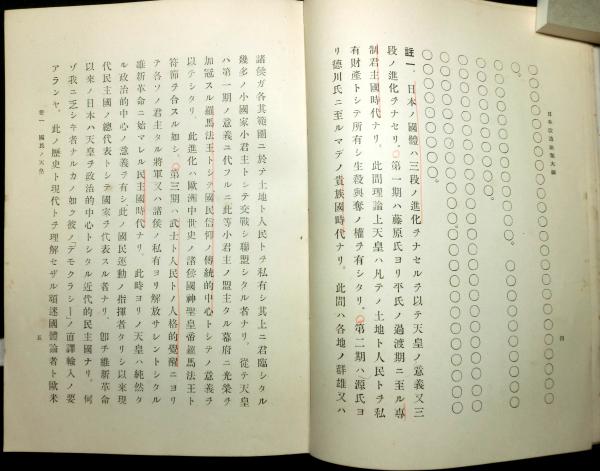 日本改造法案大綱
註一。日本ノ國體ハ三段ノ進化ヲナセルヲ以テ天皇ノ意義又三
段ノ進化ヲナセリ。第一期ハ藤原氏ヨリ平氏ノ過渡期ニ至ル專
制君主國時代ナリ。此間理論上天皇ハ凡テノ土地ト人民トヲ私
有財產トシテ所有シ生殺與奪ノ權ヲ有シタリ。第二期ハ源氏ヨ
リ德川氏ニ至ルマデノ貴族國時代ナリ。此間ハ各地ノ群雄又ハ
四
諸侯ガ各其範圍ニ於テ土地ト人民トヲ私有シ其上ニ君臨シタル
幾多ノ小國家小君主トシテ交戰シ聯盟シタル者ナリ。從テ天皇
ハ第一期ノ意義ニ代フルニ此等小君主ノ盟主タル幕府ニ光榮ヲ
加冠スル羅馬法王トシテ國民信仰ノ傳統的中心トシテノ意義ヲ
以テシタリ。此進化ハ歐洲中世史ノ諸侯國神聖皇帝羅馬法王ト
符節ヲ合スル如シ。第三期ハ武士ト人民トノ人格的覺醒ニヨリ
テ各ソノ君主タル將軍又ハ諸侯ノ私有ヨリ解放サレントシタル
維新革命ニ始マレル民主國時代ナリ。此時ヨリノ天皇ハ純然タ
ル政治的中心ノ意義ヲ有シ此ノ國民運動ノ指揮者タリシ以來現
代民主國ノ總代表トシテ國家ヲ代表スル者ナリ。卽チ維新革命
以來ノ日本ハ天皇ヲ政治的中心トシタル近代的民主國ナリ。何
ゾ我ニ乏シキ者ナルカノ如ク彼ノ「デモクラシー」ノ直譯輸入ノ要
アランヤ。此ノ歷史ト現代トヲ理解セザル頑迷國體論者ト歐米
卷一 國民ノ天皇
五